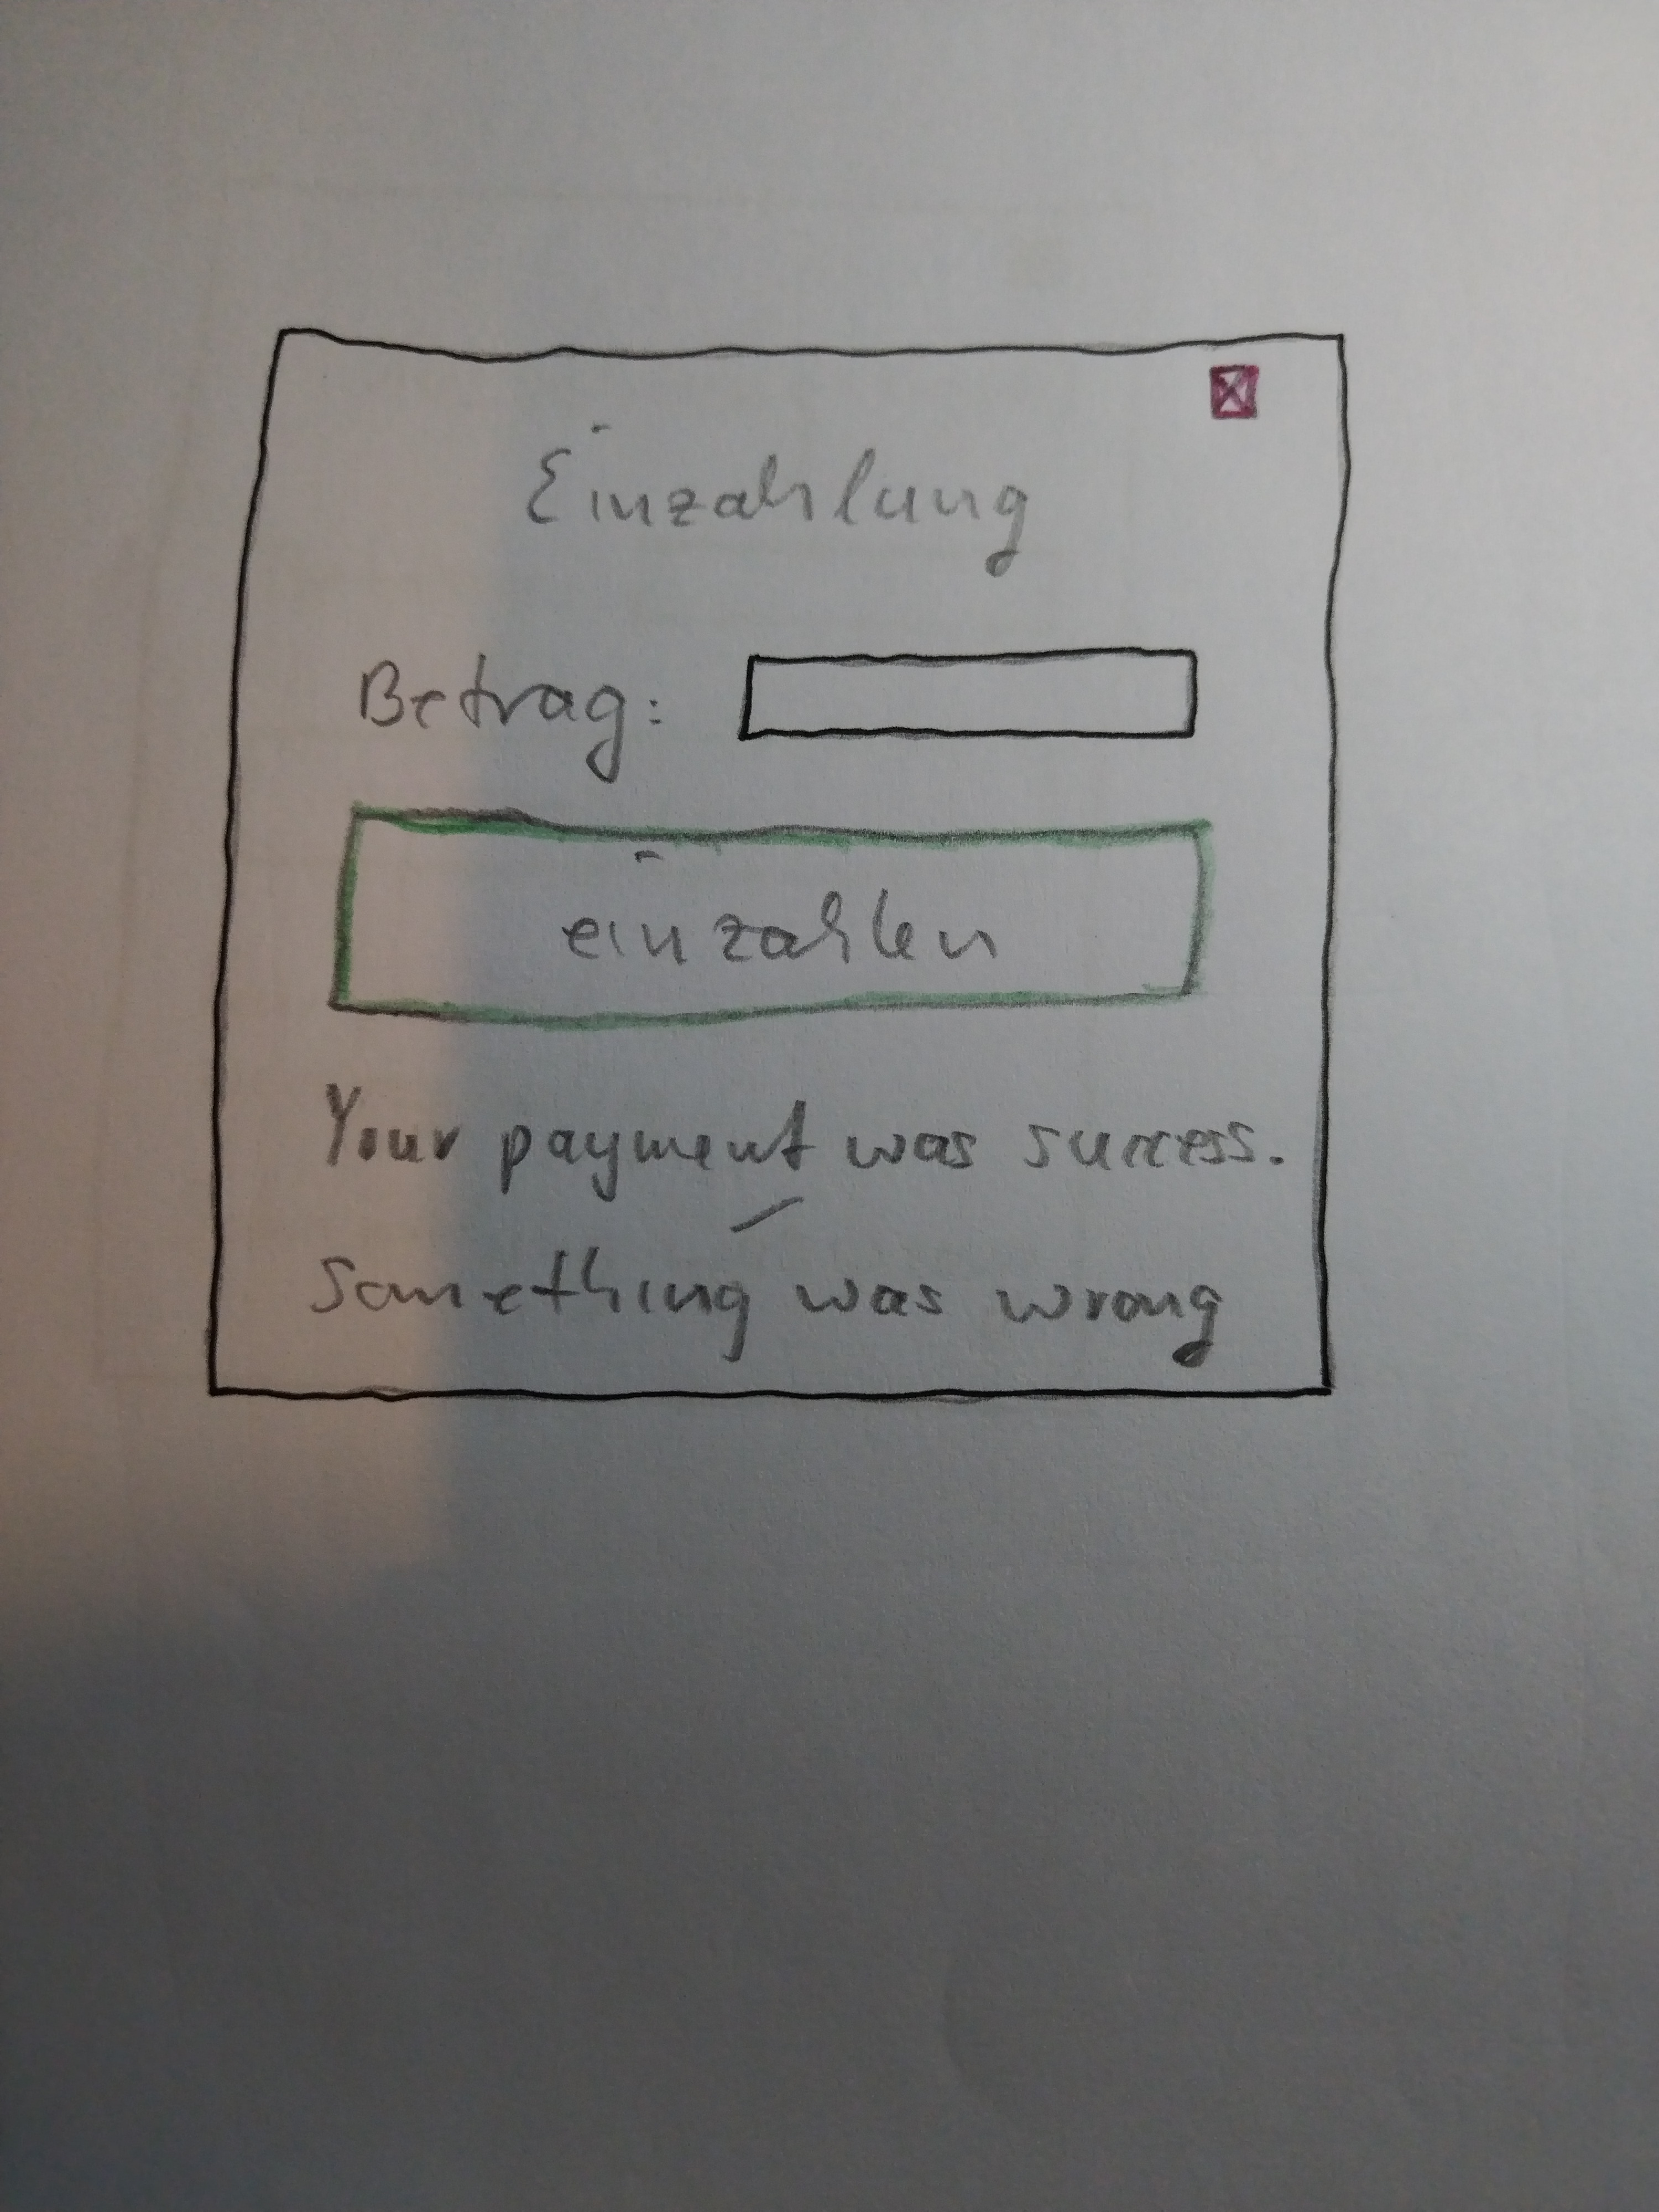 Einzahlung
Betrag:
einzahlen
Your payment was success.
/
Something was wrong